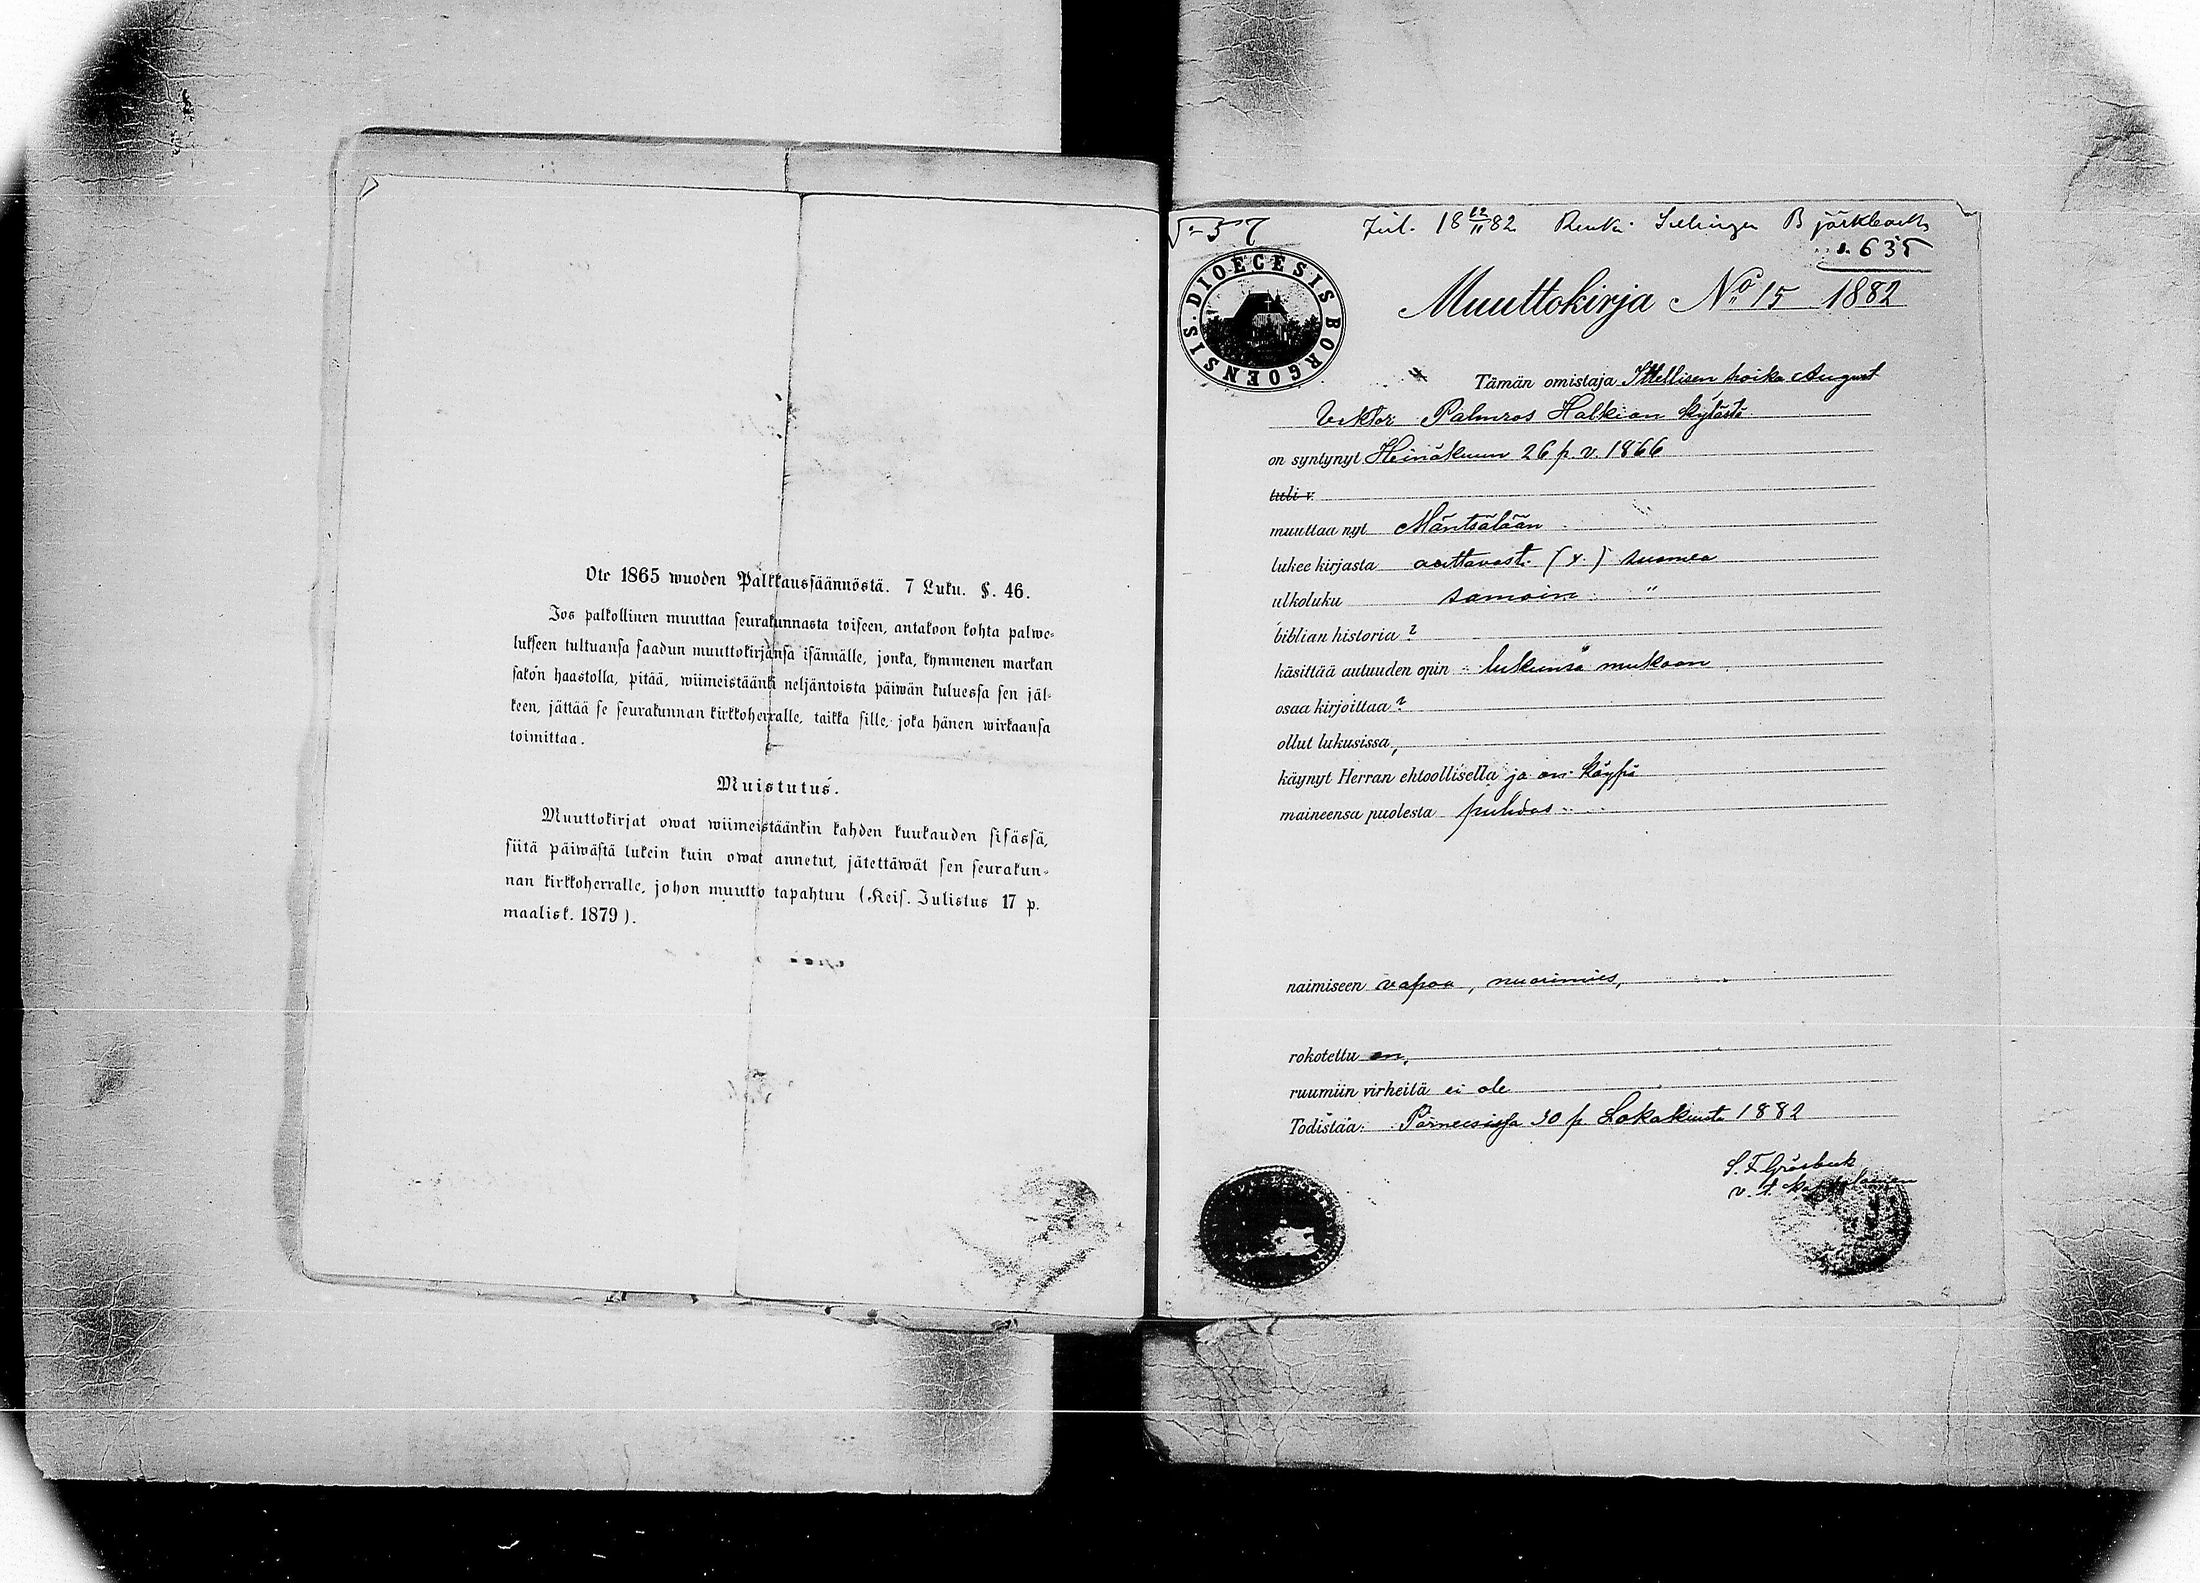 Ote 1865 wuoden Palkkaussäännöstä. 7 Luku. §. 46.
Jos palkollinen muuttaa seurakunnasta toiseen, antakoon kohta palwe-
lukseen tultuansa saadun muuttokirjansa isännälle, jonka, kymmenen markan
sakon haastolla, pitää, wiimeistäänki neljäntoista päiwän kuluessa sen jäl-
keen, jättää se seurakunnan kirkkoherralle, taikka sille, joka hänen wirkaansa
toimittaa.
Muistutus.
Muuttokirjat owat wiimeistäänkin kahden kuukauden sisässä,
siitä päiwästä lukein kuin owat annetut, jätettäwät sen seurakun-
nan kirkkoherralle, johon muutto tapahtuu (Keis. Julistus 17 p.
maalisk. 1879).
57
18 12/11 82 Renki Björkbacka
s. 635
DIOECESIS BORGOENSIS
Muuttokirja No 15 1882
Tämän omistaja Ittellisen poika August
Viktor Palmros Halkian kylästä
on syntynyt Heinäkuun 26 p. v. 1866
tuli v.
muuttaa nyt Mäntsälään
lukee kirjasta auttavasti (x.) suomea
ulkoluku samoin "
biblian historia ?
käsittää autuuden opin lukunsa mukaan
osaa kirjoittaa ?
ollut lukusissa,
käynyt Herran ehtoollisella ja on käypä
maineensa puolesta puhdas
naimiseen vapaa, nuorimies,
rokotettu on,
ruumiin virheitä ei ole
Todistaa: Pornesissa 30 p Lokakuuta 1882